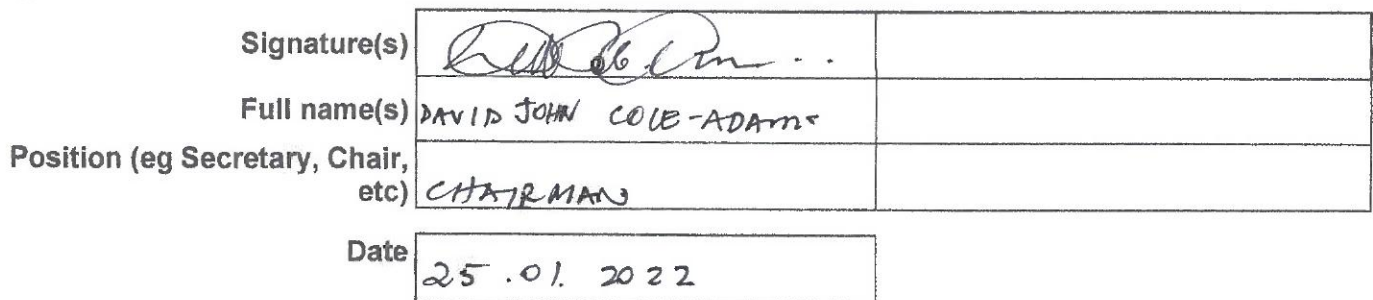 Signature(s)
Full name(s) DAVID JOHN COLE-ADAMS
Position (eg Secretary, Chair,
etc) CHAIRMAN
Date
25.01.2022